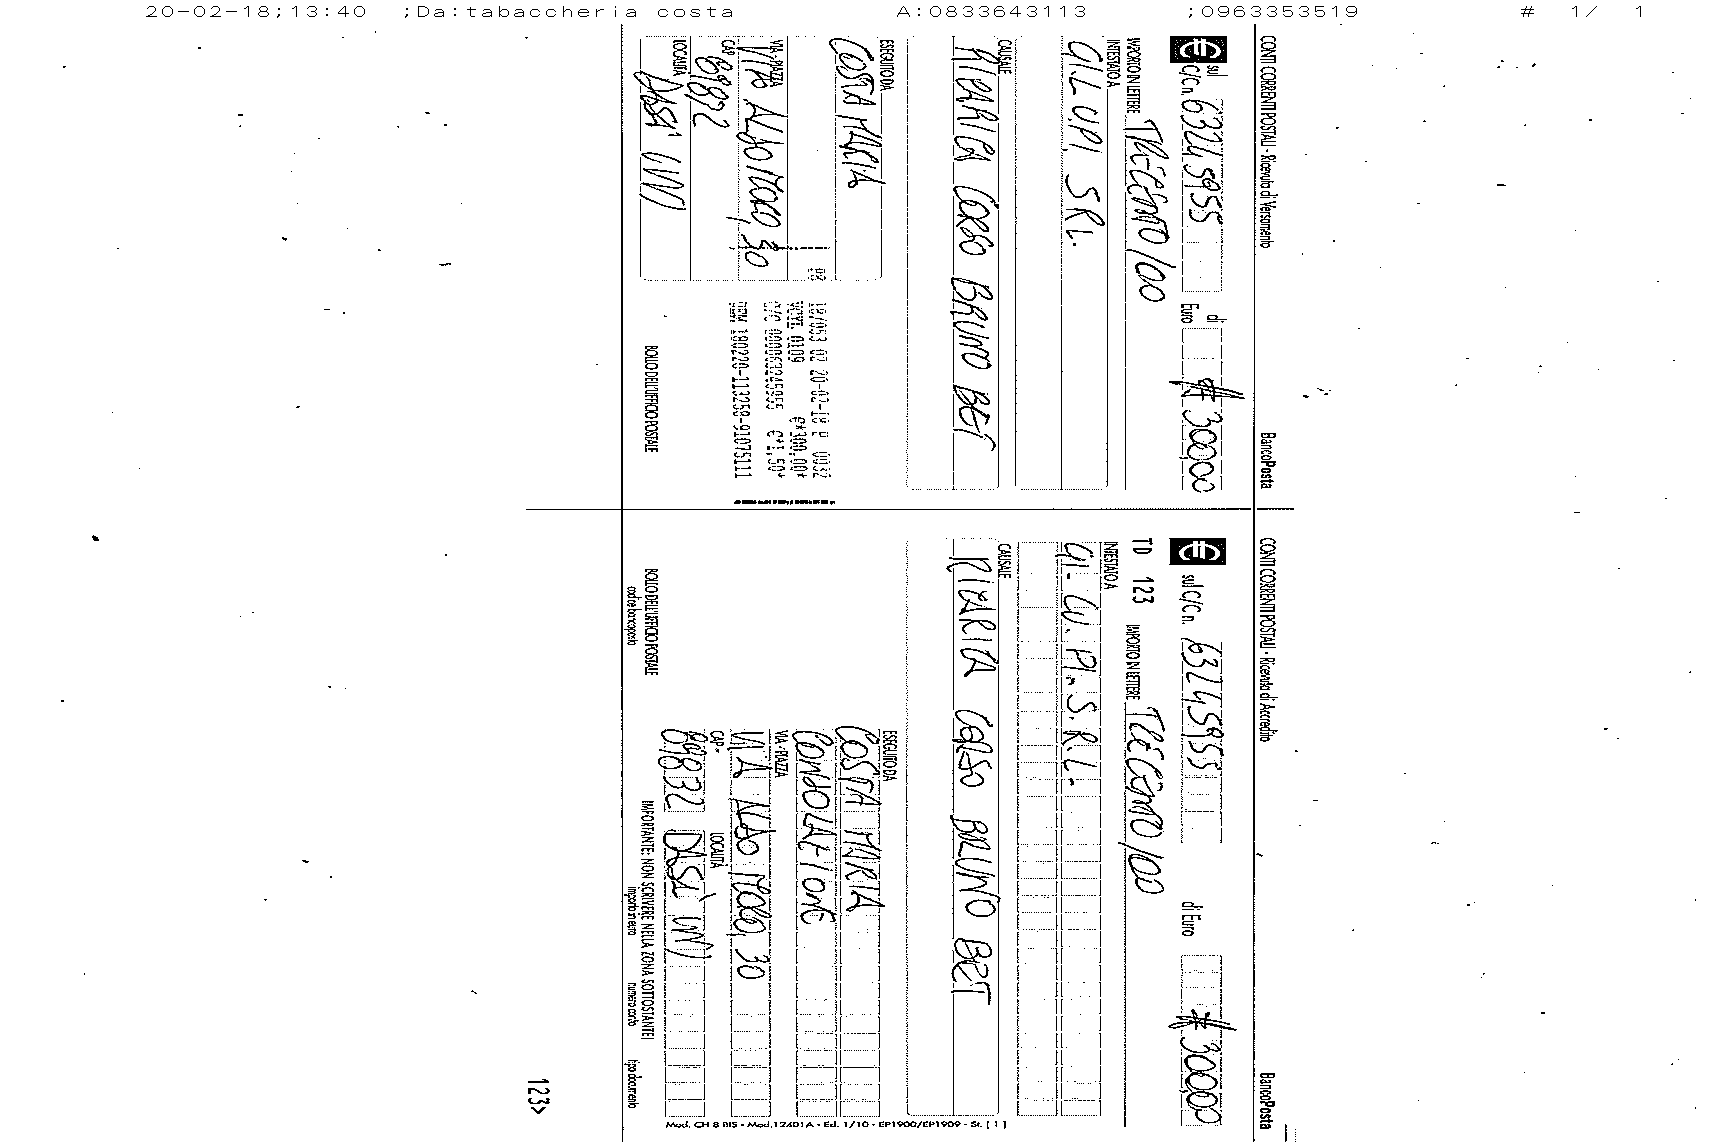 20-02-18;13:40 ;Da:tabaccheria costa A:0833643113 ;0963353519 # 1/ 1
CONTI CORRENTI POSTALI - Ricevuta di Versamento BancoPosta
sul C/C n. 63245955 di Euro 300,00
IMPORTO IN LETTERE TRECENTO/00
INTESTATO A
GI.LU.PI. SRL.
CAUSALE
RICARICA CORSO BRUNO BET
ESEGUITO DA
COSTA MARIA
VIA - PIAZZA
VIA ALDO MORO, 30
CAP
89832
LOCALITÀ
DASA' (VV)
18/053 02 20-02-18 P 0032
VCYL 0109 €*300,00*
C/C 000063245955 €*1,50*
180220-113258-91075111
BOLLO DELL'UFFICIO POSTALE
CONTI CORRENTI POSTALI - Ricevuta di Accredito BancoPosta
sul C/C n. 63245955 di Euro 300,00
TD 123 IMPORTO IN LETTERE TRECENTO/00
INTESTATO A
GI. LU. PI. S.R.L.
CAUSALE
RICARICA CORSO BRUNO BET
ESEGUITO DA
COSTA MARIA
CONDOLEZIONE
VIA - PIAZZA
VIA ALDO MORO, 30
CAP LOCALITÀ
89832 DASA' (VV)
BOLLO DELL'UFFICIO POSTALE
codice bancoposta
IMPORTANTE: NON SCRIVERE NELLA ZONA SOTTOSTANTE!
importo in euro numero conto tipo documento
123>
Mod. CH 8 BIS - Mod. 12401A - Ed. 1/10 - EP1900/EP1909 - St. [ 1 ]